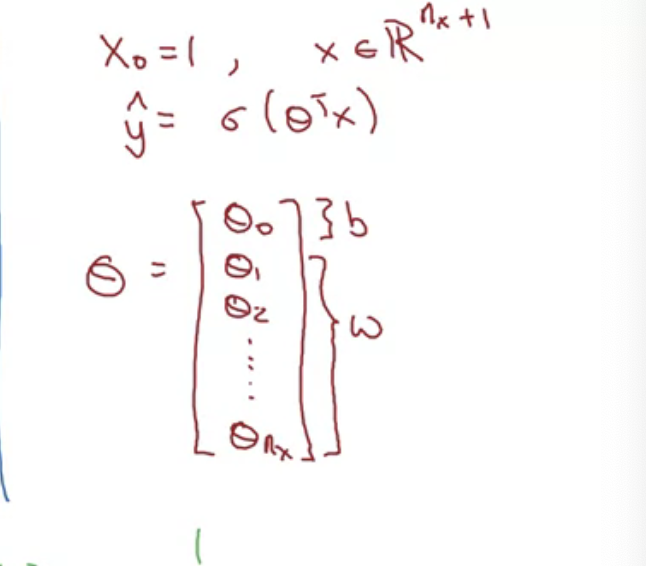 x₀ = 1 , x ∈ ℝⁿˣ⁺¹
ŷ = σ(θᵀx)
θ = [ θ₀ ] } b
θ₁
θ₂
⋮
θₙₓ } w